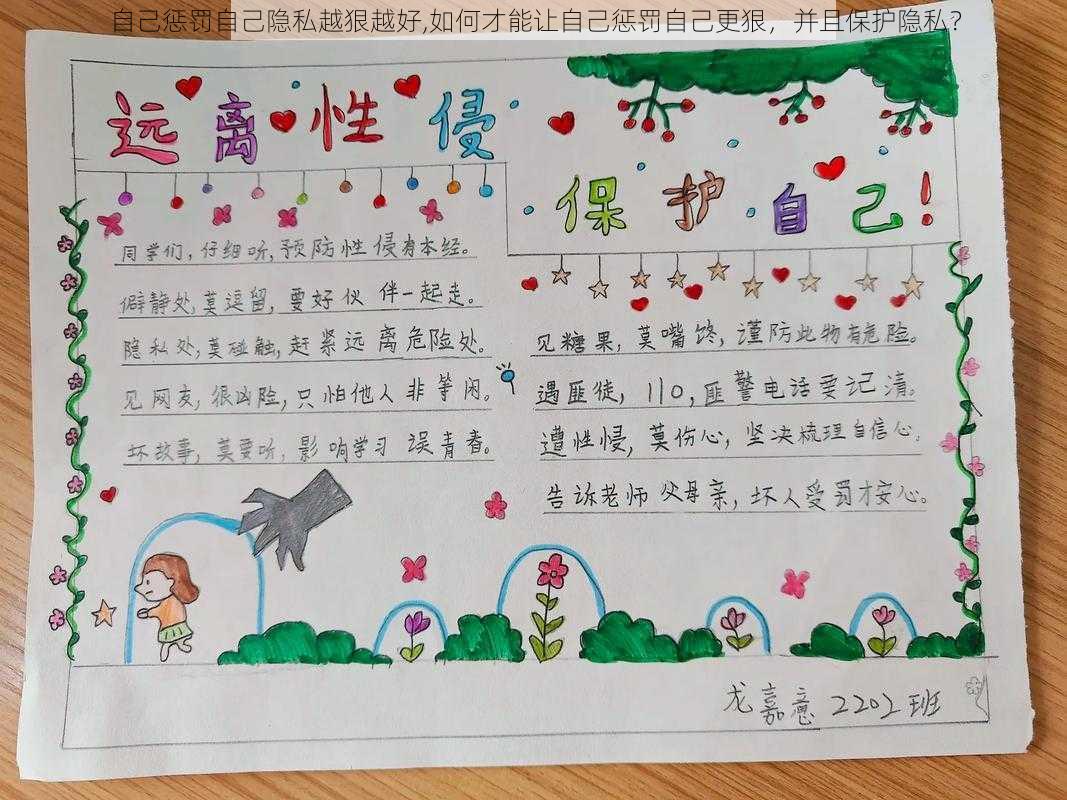 自己惩罚自己隐私越狠越好,如何才能让自己惩罚自己更狠，并且保护隐私？
远离性侵
保护自己！
同学们，仔细听，预防性侵有本经。
僻静处，莫逗留，要好伙伴一起走。
隐私处，莫碰触，赶紧远离危险处。
见网友，很凶险，只怕他人非等闲。
坏故事，莫要听，影响学习误青春。
见糖果，莫嘴馋，谨防此物有危险。
遇匪徒，110，匪警电话要记清。
遭性侵，莫伤心，坚决梳理自信心。
告诉老师父母亲，坏人受罚才安心。
龙嘉意 2202班